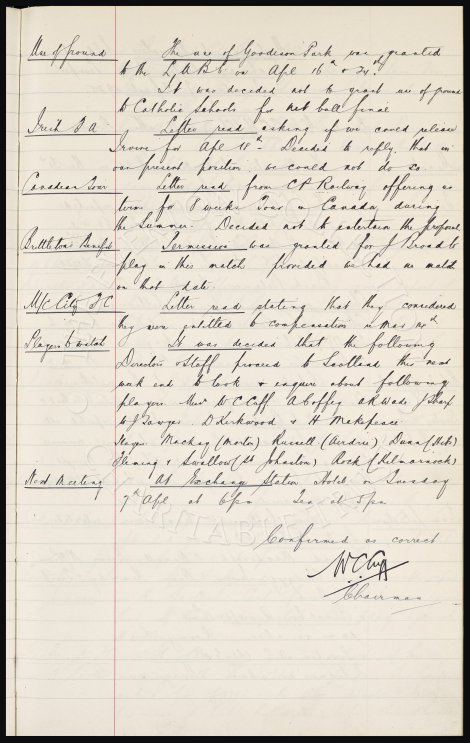 Use of ground The use of Goodison Park was granted
to the L.A.B.C. on Apl 16th & 24th.
It was decided not to grant use of ground
to Catholic Schools for net ball final
Irish F A Letter read asking if we could release
Irvine for Apl 18th Decided to reply that in
our present position we could not do so.
Canadian Tour Letter read from CP Railway offering us
terms for 8 weeks Tour in Canada during
the Summer. Decided not to entertain the proposal
Brittleton's Benefit Permission was granted for J Broad to
play in this match provided we had no match
on that date.
M/C City F C Letter read stating that they considered
they were entitled to compensation in
Players to watch It was decided that the following
Directors & Staff proceed to Scotland this next
week end to look & enquire about following
players Messrs W C Cuff A Coffey A R Wade J Sharp
W J Sawyer. D Kirkwood & H Makepeace
Players Mackay (Morton) Russell (Airdrie) Dunn (Hibs)
Fleming & Swallow (St Johnston) Rock (Kilmarnock)
Next Meeting At Exchange Station Hotel on Tuesday
7th Apl at 6pm Tea at 5pm
Confirmed as correct
W C Cuff
Chairman
CHARITABLE